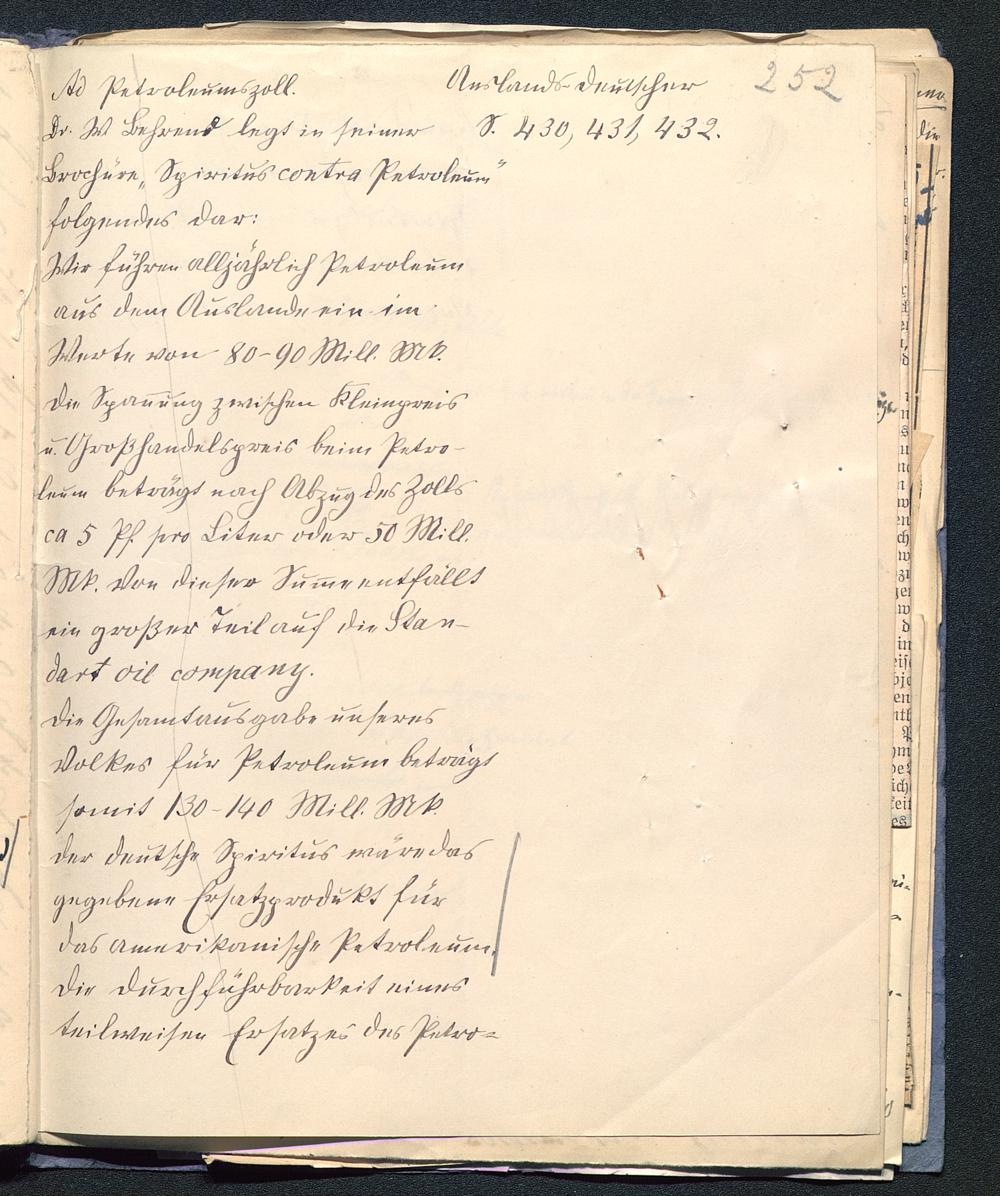 Ad Petroleumszoll.
Auslands-Deutscher
252
S. 430, 431, 432.
Dr. W Behrend legt in seiner
Brochüre „Spiritus contra Petroleum“
folgendes dar:
Wir führen alljährlich Petroleum
aus dem Auslande ein im
Werte von 80-90 Mill. Mk.
Die Spannung zwischen Kleinpreis
u. Großhandelspreis beim Petro-
leum beträgt nach Abzug des Zolls
ca 5 Pf. pro Liter oder 50 Mill.
Mk. Von dieser Summe entfällt
ein großer Teil auf die Stan-
dart oil company.
Die Gesamtausgabe unseres
Volkes für Petroleum beträgt
somit 130-140 Mill. Mk.
Der deutsche Spiritus wäre das
gegebene Ersatzprodukt für
das amerikanische Petroleum.
Die Durchführbarkeit eines
teilweisen Ersatzes des Petro=